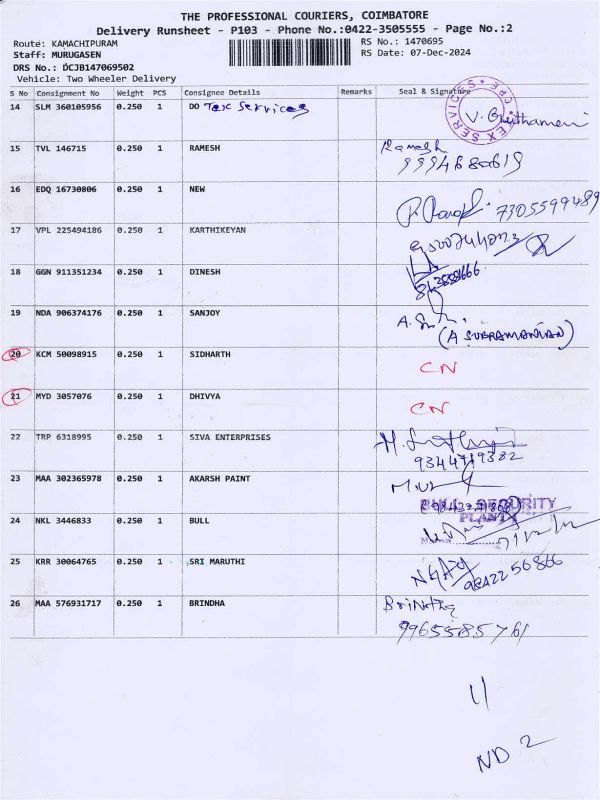 THE PROFESSIONAL COURIERS, COIMBATORE
Delivery Runsheet - P103 - Phone No.:0422-3505555 - Page No.:2
Route: KAMACHIPURAM RS No.: 1470695
Staff: MURUGASEN RS Date: 07-Dec-2024
DRS No.: DCJB147069502
Vehicle: Two Wheeler Delivery
S No Consignment No Weight PCS Consignee Details Remarks Seal & Signature
14 SLM 360105956 0.250 1 DO Tex Services
15 TVL 146715 0.250 1 RAMESH Ramesh
9994680619
16 EDQ 16730806 0.250 1 NEW
7305599489
17 VPL 225494186 0.250 1 KARTHIKEYAN
18 GGN 911351234 0.250 1 DINESH
19 NDA 906374176 0.250 1 SANJOY
(A SUBRAMANIAN)
20 KCM 50098915 0.250 1 SIDHARTH CN
21 MYD 3057076 0.250 1 DHIVYA CN
22 TRP 6318995 0.250 1 SIVA ENTERPRISES
9344719382
23 MAA 302365978 0.250 1 AKARSH PAINT
SECURITY
24 NKL 3446833 0.250 1 BULL
25 KRR 30064765 0.250 1 SRI MARUTHI
9842256866
26 MAA 576931717 0.250 1 BRINDHA
9965585761
11
ND 2